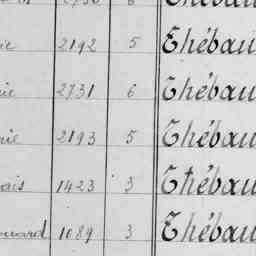 2192 5 Thébau
2731 6 Thébau
2193 5 Thébau
ais 1423 3 Thébau
ouard 1089 3 Thébau